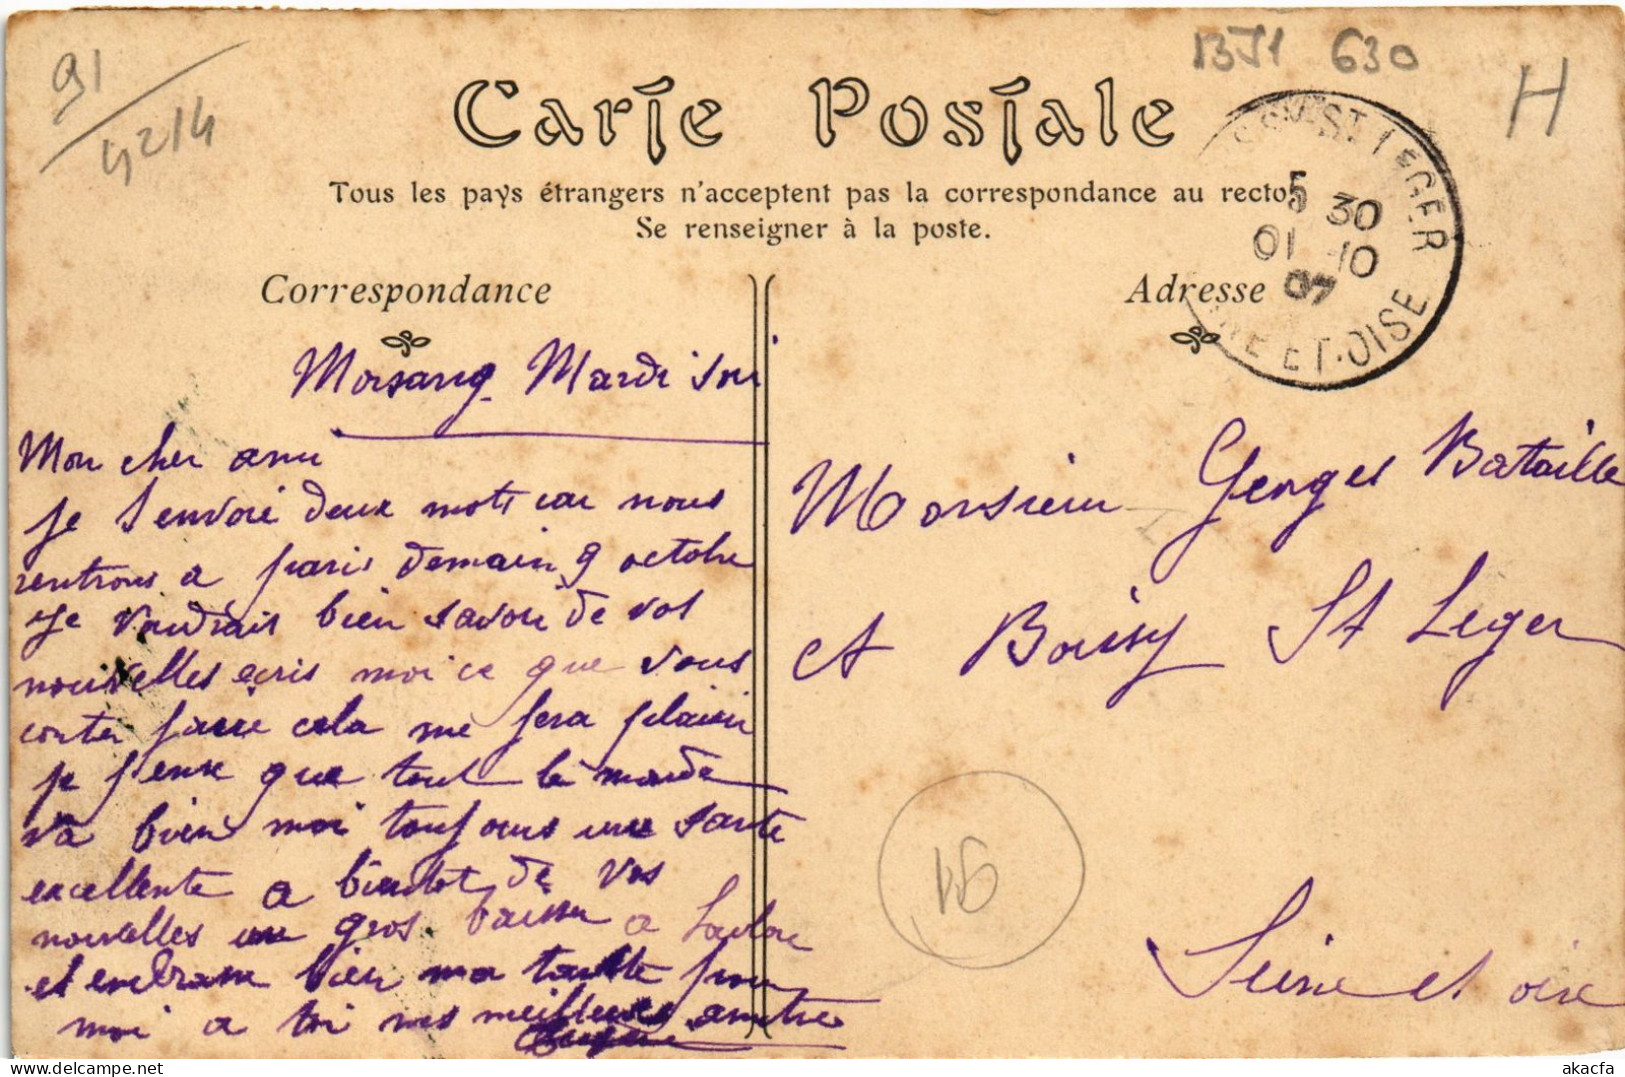 91
4214
BJ1 630
H
Carte Postale
Tous les pays étrangers n'acceptent pas la correspondance au recto.
Se renseigner à la poste.
ST LEGER
5 30
01 -10
07
ET-OISE
Correspondance
Adresse
Morsang Mardi soir
Mon cher ami
je t envoie deux mots car nous
rentrons a paris demain 9 octobre
je voudrais bien savoir de vos
nouvelles ecris moi ce que vous
conter faire cela me fera plaisir
je pense que tout le monde
va bien moi toujours une sante
excellente a bientot de vos
nouvelles un gros baiser a
et embrasse bien ma tante pour
moi a toi mes meilleures amitiés
Monsieur Georges Bataille
a Boissy St Leger
Seine et oise
91
akacfa